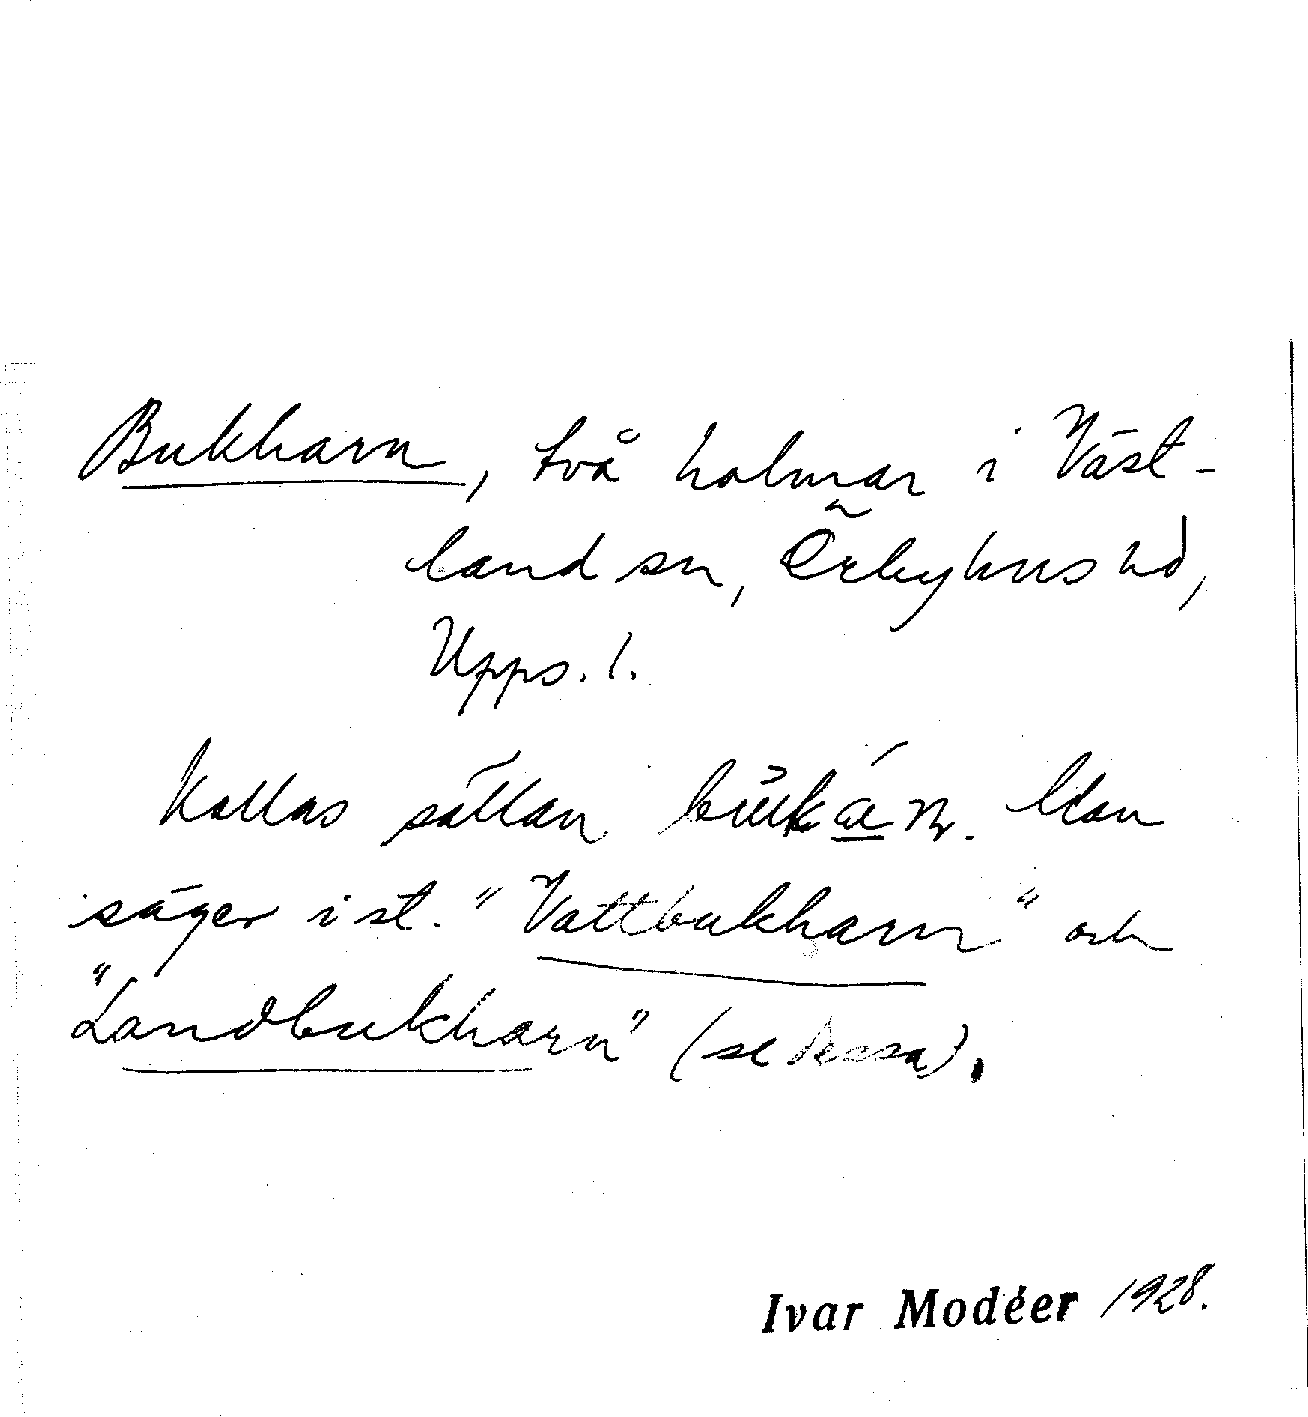 Bukharn, två holmar i Väst-
land sn, Örbyhus hd,
Upps. l.
Kallas sällan Man
säger i st. "Vattbukharn" och
"Landbukharn" (se dessa).
Ivar Modéer 1928.